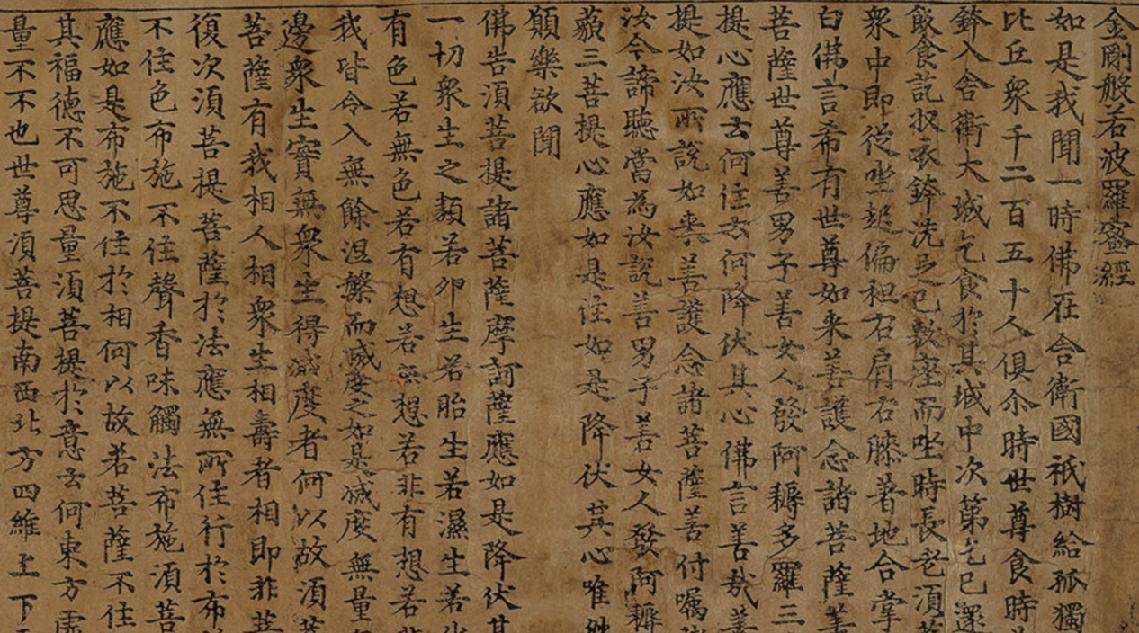 金剛般若波羅蜜經
如是我聞一時佛在舍衛國祇樹給孤獨
比丘衆千二百五十人俱尒時世尊食時
鉢入舍衛大城乞食於其城中次第乞已還
飯食訖収衣鉢洗足已敷座而坐時長老湏菩
衆中即從坐起偏袒右肩右膝著地合掌
白佛言希有世尊如来善護念諸菩薩善
菩薩世尊善男子善女人發阿耨多羅三
提心應云何住云何降伏其心佛言善哉善
提如汝所說如来善護念諸菩薩善付囑
汝今諦聽當為汝說善男子善女人發阿耨
藐三菩提心應如是住如是降伏其心唯然
願樂欲聞
佛告湏菩提諸菩薩摩訶薩應如是降伏其
一切衆生之類若卵生若胎生若濕生若化
有色若無色若有想若无想若非有想若非
我皆令入無餘涅槃而滅度之如是滅度無量
邊衆生實無衆生得滅度者何以故湏菩
菩薩有我相人相衆生相壽者相即非菩
復次湏菩提菩薩於法應無所住行於布
不住色布施不住聲香味觸法布施湏菩
應如是布施不住於相何以故若菩薩不住
其福德不可思量湏菩提於意云何東方虛
量不不也世尊湏菩提南西北方四維上下